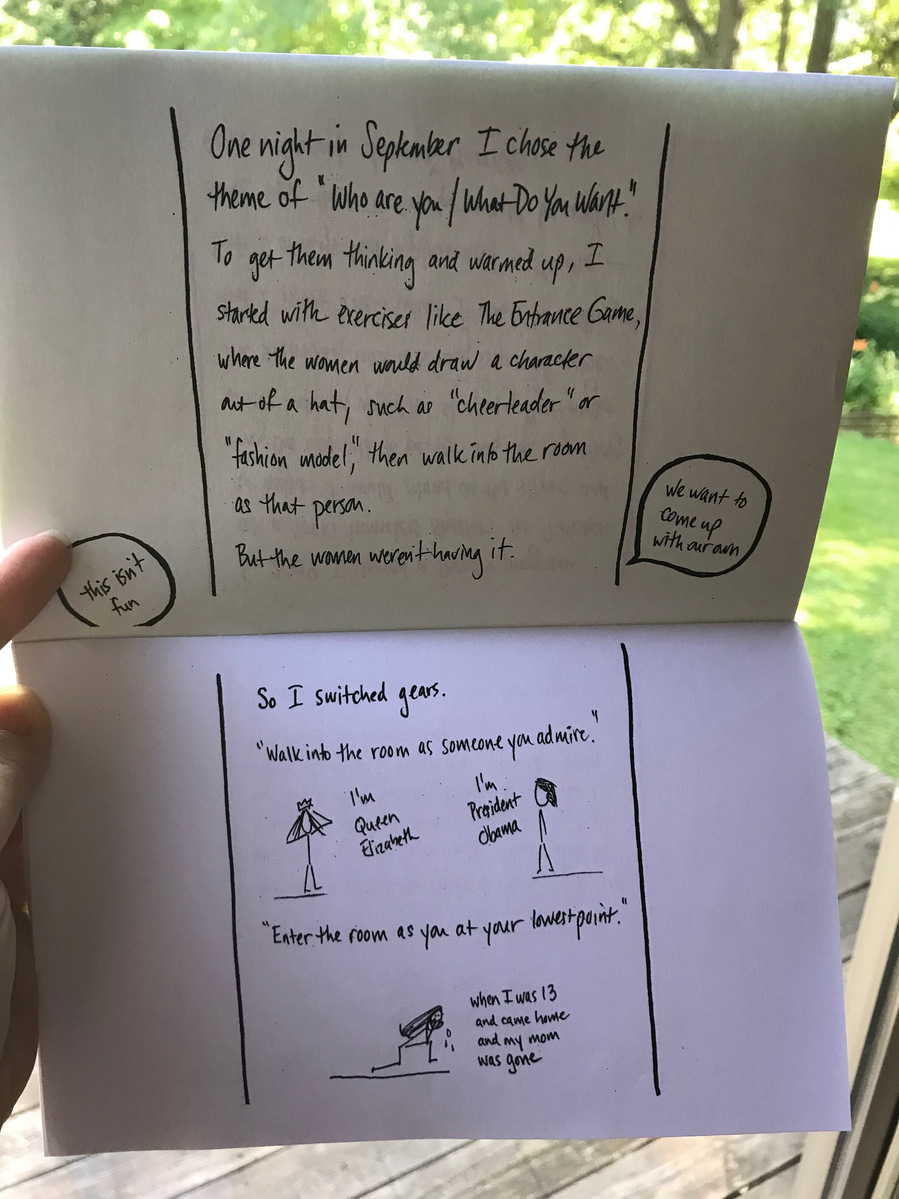 One night in September I chose the
theme of "Who are you / What Do You Want."
To get them thinking and warmed up, I
started with exercises like The Entrance Game,
where the women would draw a character
out of a hat, such as "cheerleader" or
"fashion model," then walk into the room
as that person.
But the women weren't having it.
this isn't
fun
we want to
come up
with our own
So I switched gears.
"Walk into the room as someone you admire."
I'm
Queen
Elizabeth
I'm
President
Obama
"Enter the room as you at your lowest point."
when I was 13
and came home
and my mom
was gone